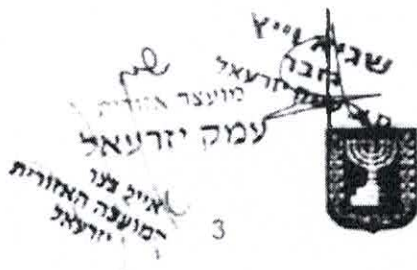 שגיא וייץ
חבר
מועצה אזורית
עמק יזרעאל
אייל בצר
המועצה האזורית
יזרעאל
3